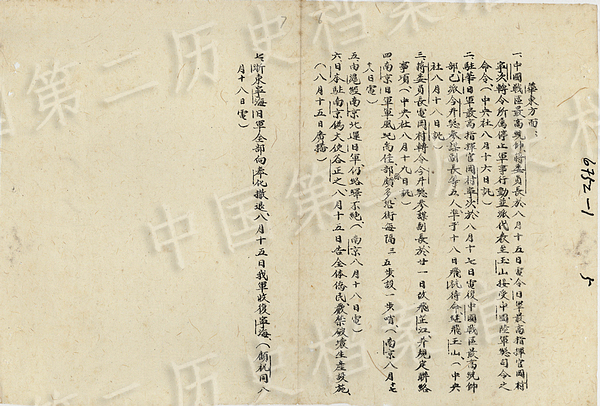 華東方面:
一、中國戰區最高統帥蔣委員長於八月十五日電令日軍最高指揮官岡村
寧次轉令所屬停止軍事行動並派代表至玉山接受中國陸軍總司令之
命令(中央社八月十六日訊)
二、駐華日軍最高指揮官岡村寧次於八月十七日電復中國戰區最高統帥
部已派今井總參謀副長等五人準于十八日飛杭待命飛玉山、(中央
社八月十八日訊)
三、蔣委員長電岡村轉令今井總參謀副長於廿一日改飛芷江并規定聯絡
事項(中央社八月十九日訊)
四、南京日軍每隔三五步設一步哨、(南京八月
十八日電)
五、由滬經南京北運日軍仍絡驛不絕、(南京八月十八日電)
六、日本駐南京偽大使谷正之八月十五日告全体僑民嚴禁破壞生產設施
(八月十五日廣播)
七、浙東寧海日軍全部向奉化撤退八月十五日我軍收復寧海、(顧祝同八
月十八日電)
6352-1
5
中国第二历史档案馆